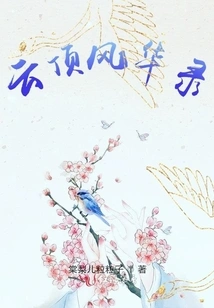 云顶风华录
棠梨儿粒粒子 著